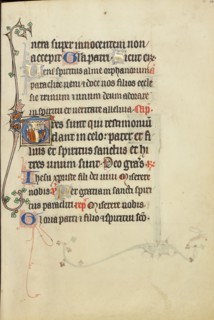 nera super innocentem non
accepit Gloria patri Sicut erat
ens spiritus alme orphanorum
paraclite rem i doce nos filios eccle
sie trinum unum deum adorare
in spiritu et veritate alleluia Cap.
Tres sunt qui testimoniū
dant in celo pater et fi
lius et spiritus sanctus et hi
tres unum sunt Deo gras
Ihesu xpriste fili dei vivi Miserere
nobis Per gratiam sancti spiri
tus paracliti Miserere nobis
Gloria patri i filio i spiritui sco.